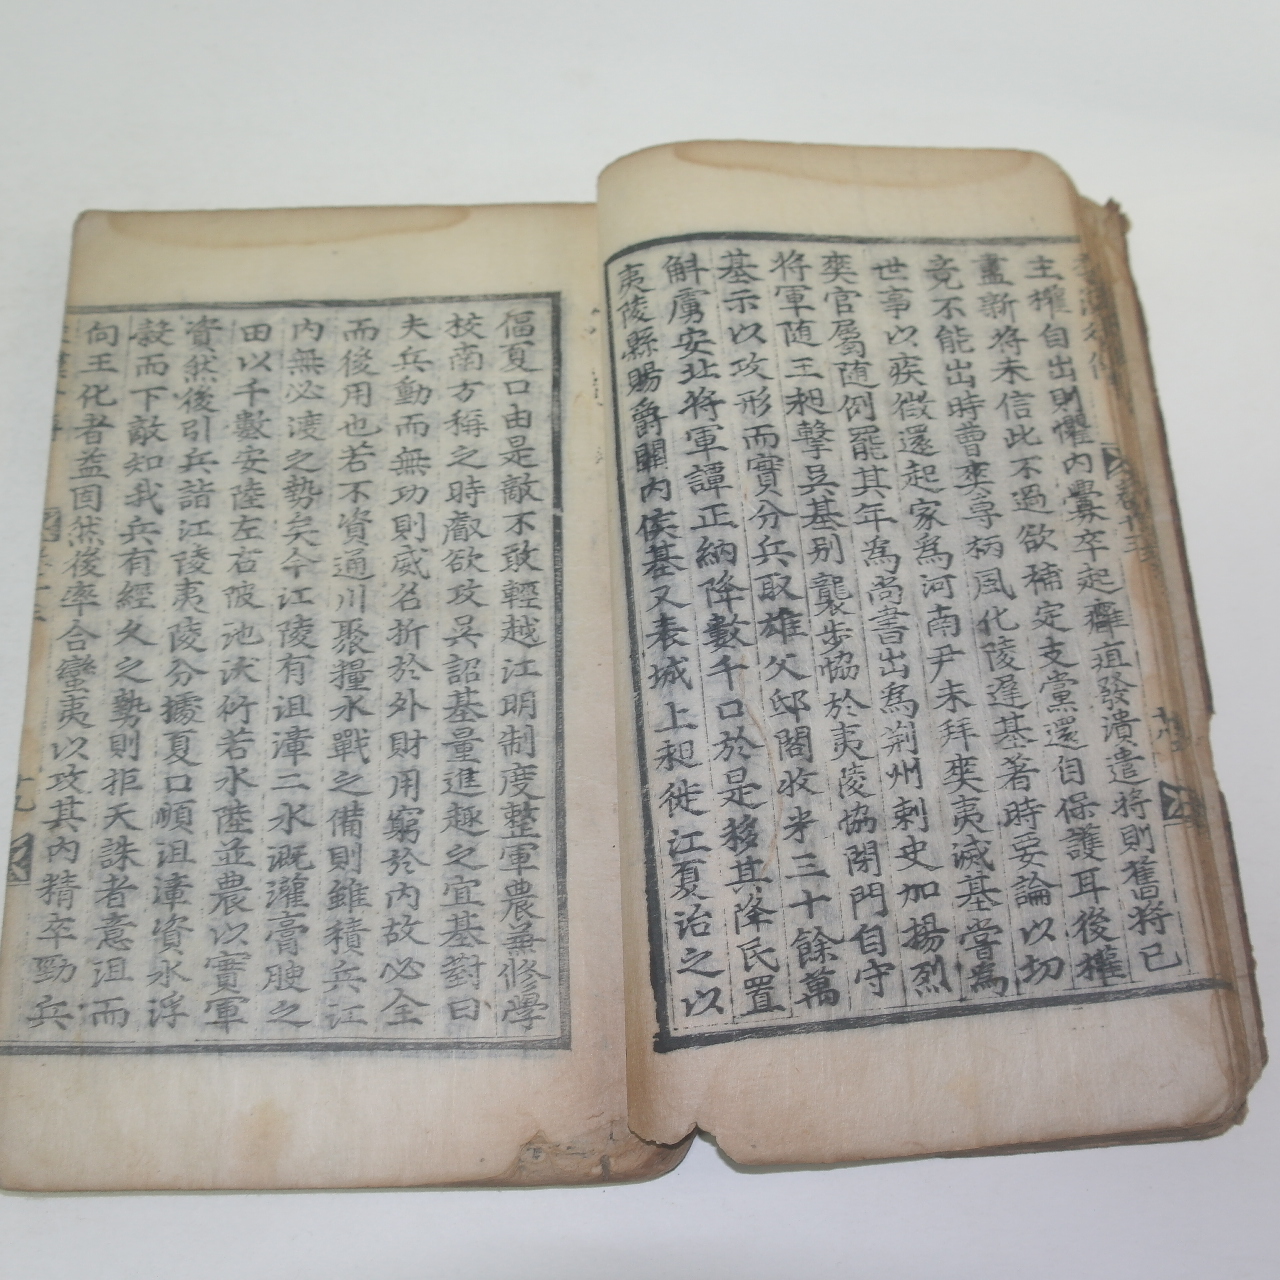 主權自出則懼內釁卒起癰疽發潰遣將則舊將已
盡新將未信此不過欲補定支黨還自保護耳後權
竟不能出時曹爽專柄風化陵遲基著時要論以切
世事以疾徵還起家爲河南尹未拜爽夷滅基嘗爲
爽官屬隨例罷其年爲尚書出爲荊州刺史加揚烈
將軍隨王昶擊吳基別襲步協於夷陵協閉門自守
基示以攻形而實分兵取雄父邸閣收米三十餘萬
斛虜安北將軍譚正納降數千口於是移其降民置
夷陵縣賜爵關內侯基又表城上昶徙江夏治之以
偪夏口由是敵不敢輕越江明制度整軍農兼修學
校南方稱之時叡欲攻吳詔基量進趣之宜基對曰
夫兵動而無功則威名折於外財用窮於內故必全
而後用也若不資通川聚糧水戰之備則雖積兵江
內無必渡之勢矣今江陵有沮漳二水溉灌膏腴之
田以千數安陸左右陂池沃衍若水陸並農以實軍
資然後引兵詣江陵夷陵分據夏口順沮漳資水浮
穀而下敵知我兵有經久之勢則拒天誅者意沮而
向王化者益固然後率合蠻夷以攻其內精卒勁兵